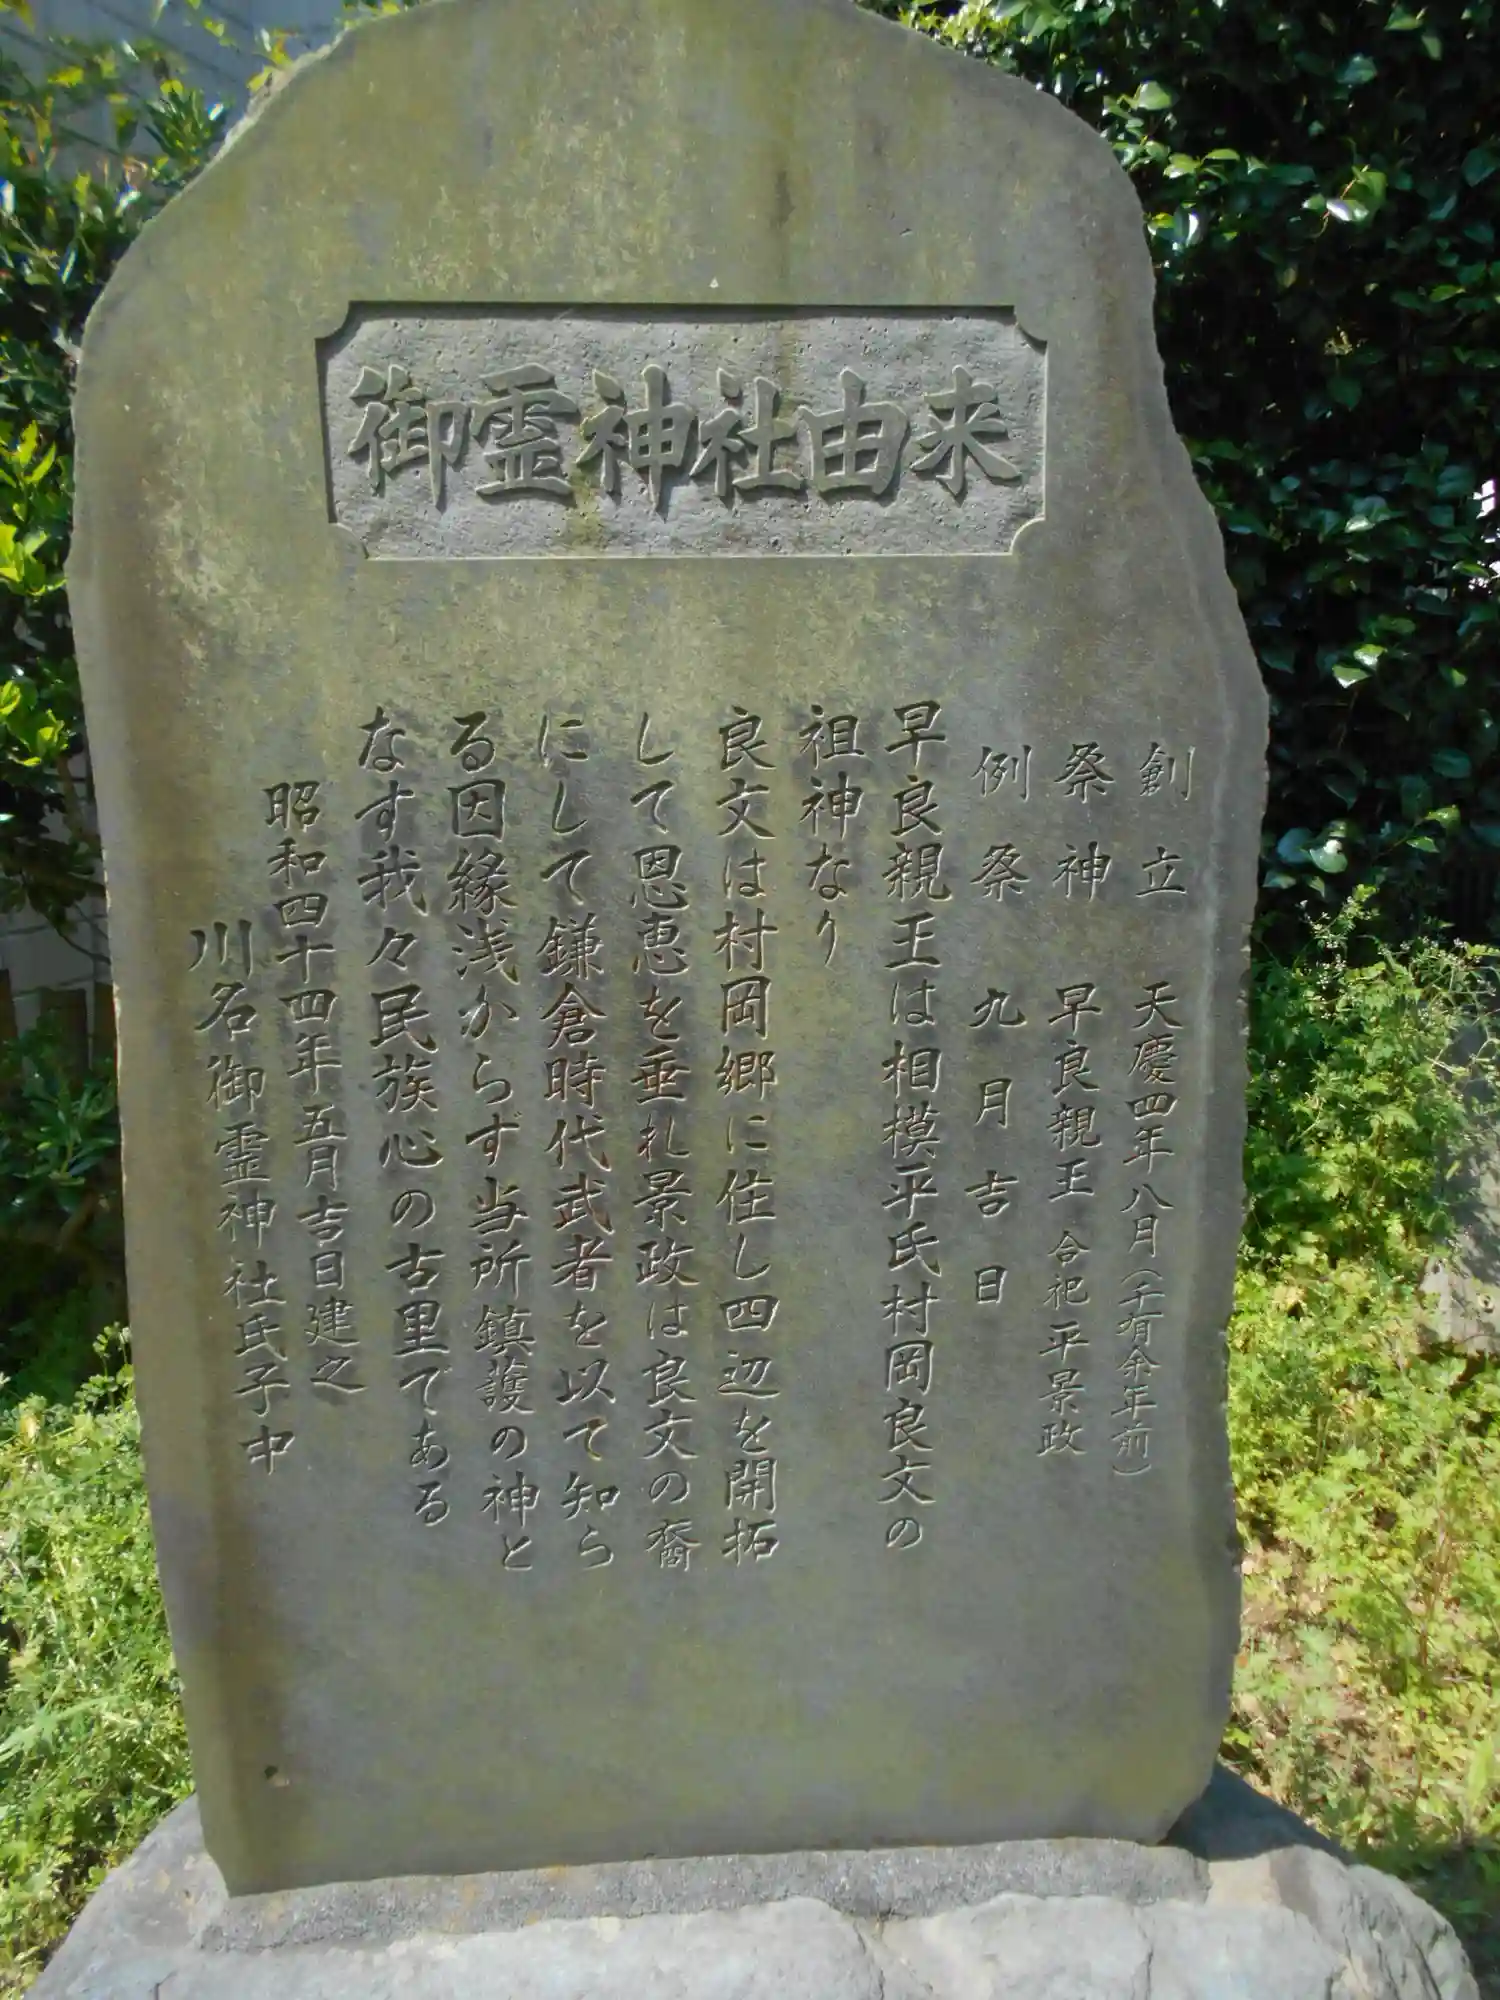 御霊神社由来
創立 天慶四年八月(千有余年前)
祭神 早良親王 合祀平景政
例祭 九月吉日
早良親王は相模平氏村岡良文の
祖神なり
良文は村岡郷に住し四辺を開拓
して恩恵を垂れ景政は良文の裔
にして鎌倉時代武者を以て知ら
る因縁浅からず当所鎮護の神と
なす我々民族心の古里である
昭和四十四年五月吉日建之
川名御霊神社氏子中